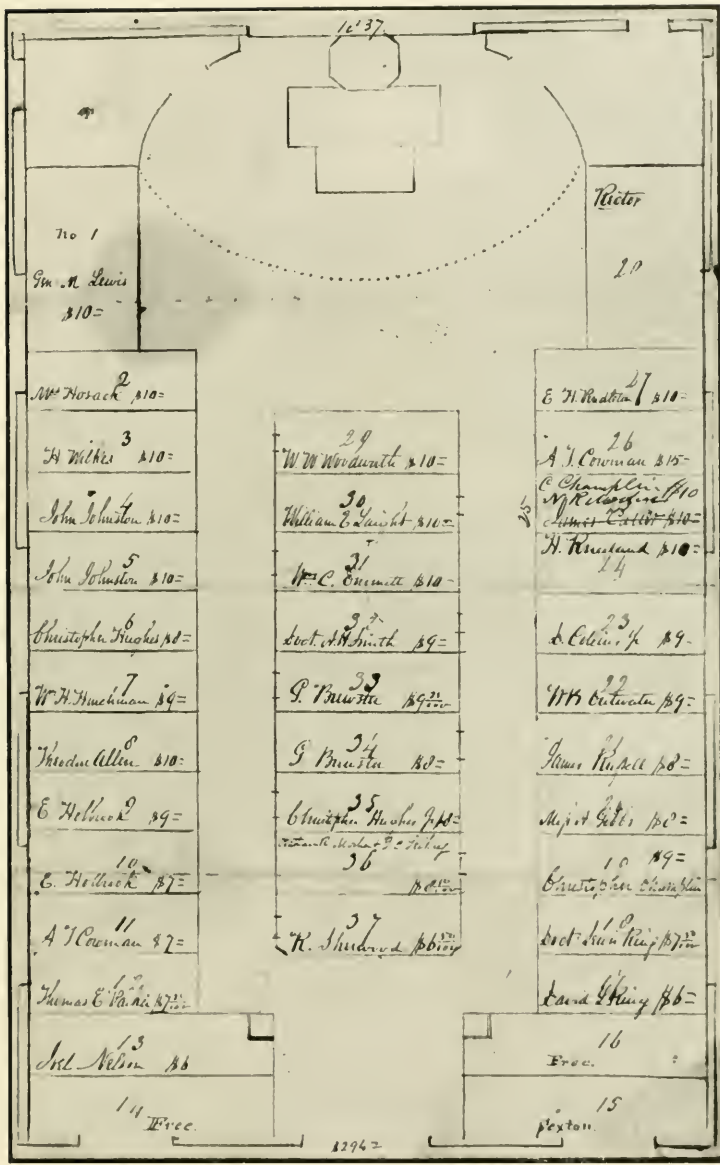 1837
No 1
Gen M Lewis
$10=
2
Wm Hosack $10=
3
H Wilkes $10=
4
John Johnston $10=
5
John Johnston $10=
6
Christopher Hughes $8=
7
W. H. Hinchman $9=
8
Theodore Allen $10=
9
E Holbrook $9=
10
E. Holbrook $7=
11
A J Cowman $7=
12
Thomas E $7
13
Joel Nelson $6
14
Free.
29
W. W Woodworth $10=
30
William E Laight $10=
31
Wm C. Emmett $10=
32
Doct. A. H Smith $9=
33
G. Brewster $9
34
G Brewster $8=
35
Christopher Hughes Jr $8=
36
37
R. Sherwood $6
Rector
28
27
E H. Pendleton $10=
26
A J. Cowman $15=
C Champlin $10
25
$10=
H. Kneeland $10=
24
23
D. Collins Jr $9=
22
WB Outwater $9=
21
James Russell $8=
Major A Gibbs $8=
19 $9=
Christopher Champlin
18
Doct Lewis Ring $7
David L Ring $6=
16
Free.
15
Sexton.
$294=